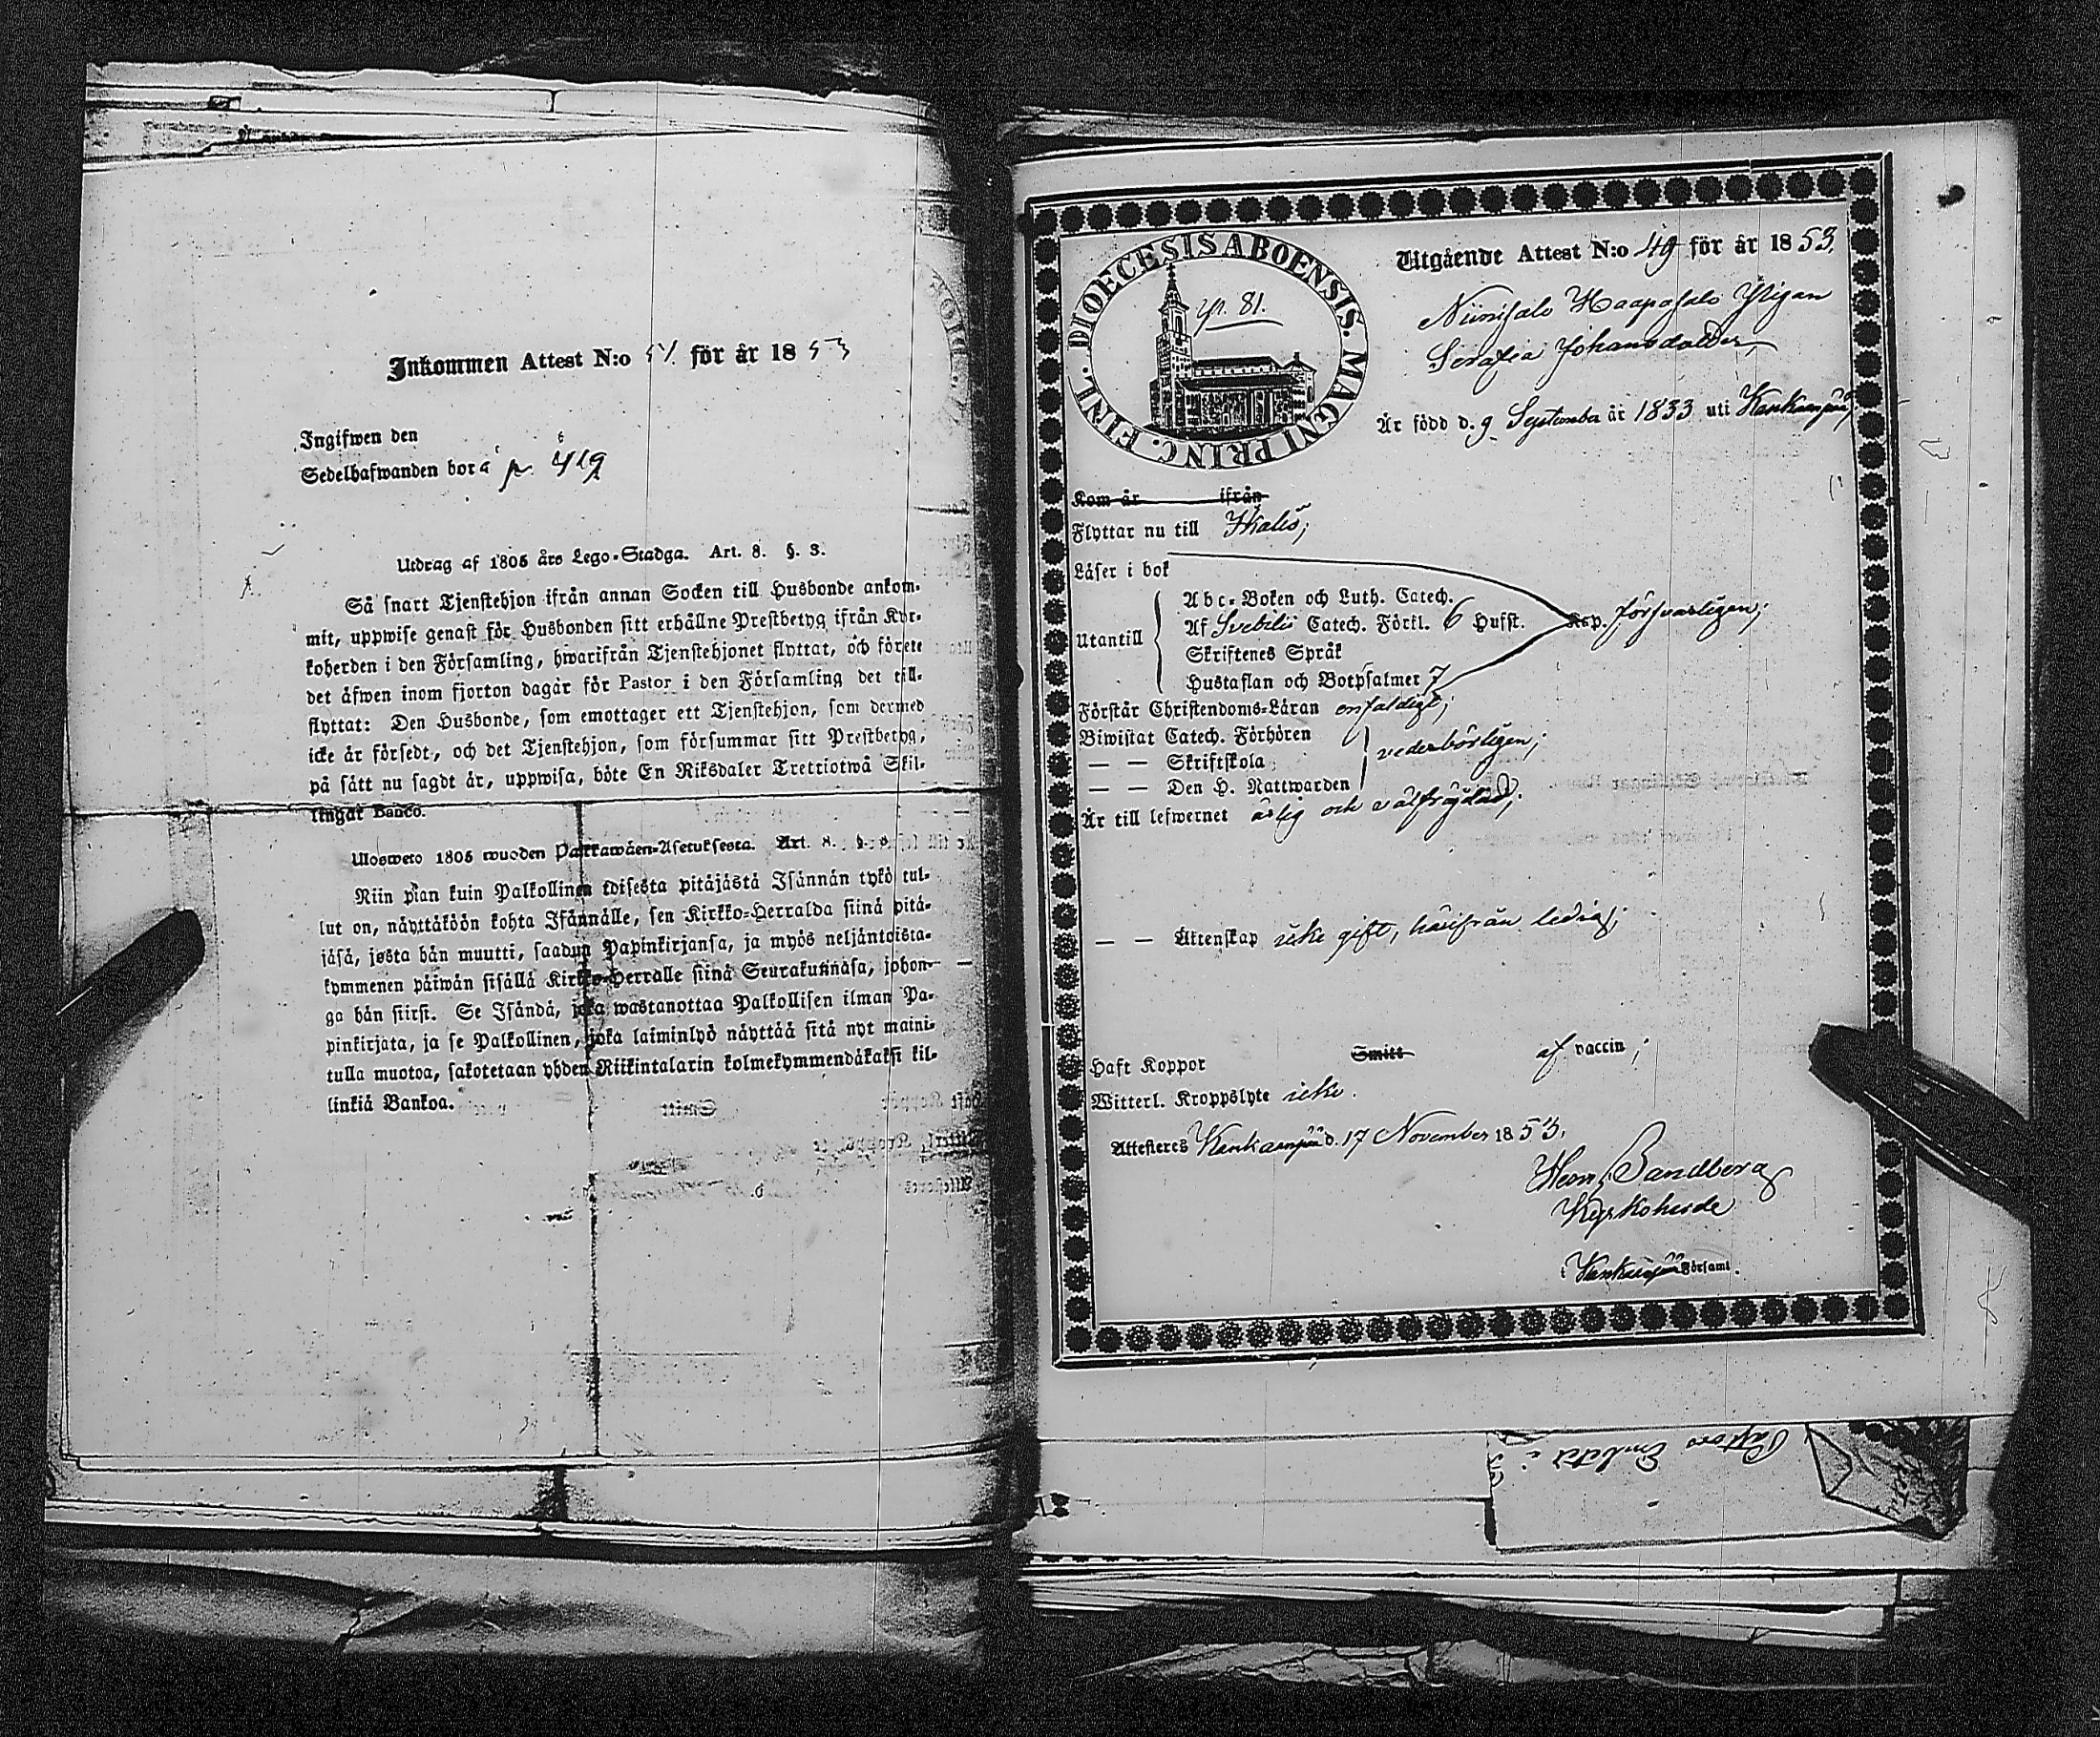 Inkommen Attest N:o 51. för år 1853
Ingifwen den
Sedelhafwanden bor å p. 419
Utdrag af 1805 års Lego-Stadga. Art. 8. §. 3.
Så snart Tjenstehjon ifrån annan Socken till Husbonde ankom-
mit, uppwise genast för Husbonden sitt erhållne Prestbetyg ifrån Kyr-
koherden i den Församling, hwarifrån Tjenstehjonet flyttat, och förete
det äfwen inom fjorton dagar för Pastor i den Församling det till-
flyttat: Den Husbonde, som emottager ett Tjenstehjon, som dermed
icke är försedt, och det Tjenstehjon, som försummar sitt Prestbetyg,
på sätt nu sagdt är, uppwisa, böte En Riksdaler Trettiotwå Skil-
lingar Banco.
Ulosweto 1805 wuoden Palkawäen-Asetuksesta. Art. 8. §. 3.
Niin pian kuin Palkollinen toisesta pitäjästä Isännän tykö tul-
lut on, näyttäköön kohta Isännälle, sen Kirkko-Herralda siinä pitä-
jäsä, josta hän muutti, saadun Papinkirjansa, ja myös neljäntoista-
kymmenen päiwän sisällä Kirkko-Herralle siinä Seurakunnasa, johon-
ga hän siirsi. Se Isändä, joka wastanottaa Palkollisen ilman Pa-
pinkirjata, ja se Palkollinen, joka laiminlyö näyttää sitä nyt maini-
tulla muotoa, sakotetaan yhden Riikintalarin kolmekymmendäkaksi kil-
linkiä Bankoa.
DIOECESIS ABOENSIS. MAGNI PRINC. FINL.
p. 81.
Utgående Attest N:o 49 för år 1853.
Niinisalo Haapasalo Pigan
Serafia Johansdotter,
Är född d. 9 September år 1833 uti Kankaanpää,
Kom år ifrån
Flyttar nu till Ikalis;
Läser i bok
Utantill
Abc-Boken och Luth. Catech.
Af Svebilii Catech. Förkl. 6 Hufst.
Skriftenes Språk
Hustaflan och Botpsalmer 7
Resp. försvarligen;
Förstår Christendoms-Läran enfaldigt;
Biwistat Catech. Förhören
— — Skriftskola
— — Den H. Nattwarden
vederbörligen;
Är till lefwernet ärlig och välfräjdad;
— — Äktenskap icke gift, härifrån ledig;
Haft Koppor Smitt af vaccin;
Witterl. Kroppslyte icke.
Attesteras Kankaanpää d. 17 November 1853.
Sandberg
Kyrkoherde
i Kankaanpää Församl.